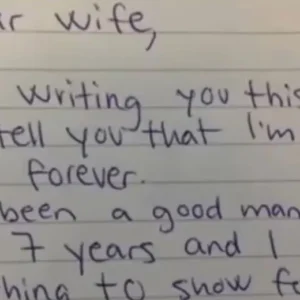 wife,
writing you
tell you that I'm
forever.
been a good man
7 years and I
to show